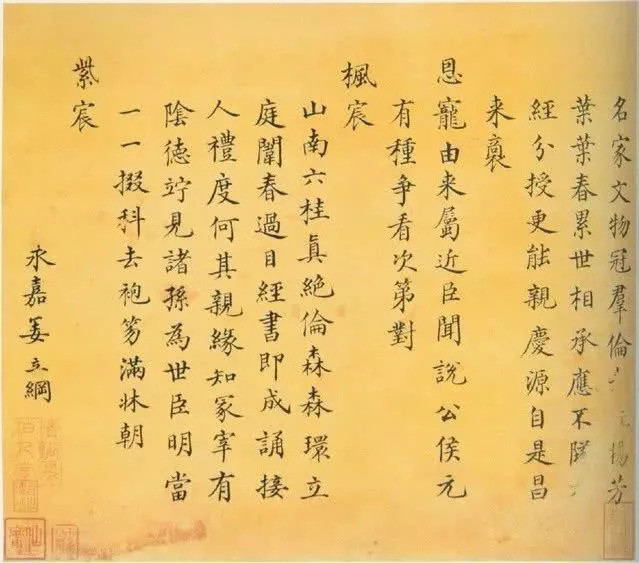 名家文物冠羣倫
揚芳
葉葉春累世相承應不墜
經分授更能親慶源自是昌
来裔
恩寵由来屬近臣聞說公侯元
有種争看次第對
楓宸
山南六桂真絶倫森森環立
庭闈春過目經書即成誦接
人禮度何其親緣知冢宰有
陰德竚見諸孫為世臣明當
一一掇科去袍笏滿牀朝
紫宸
永嘉姜立綱